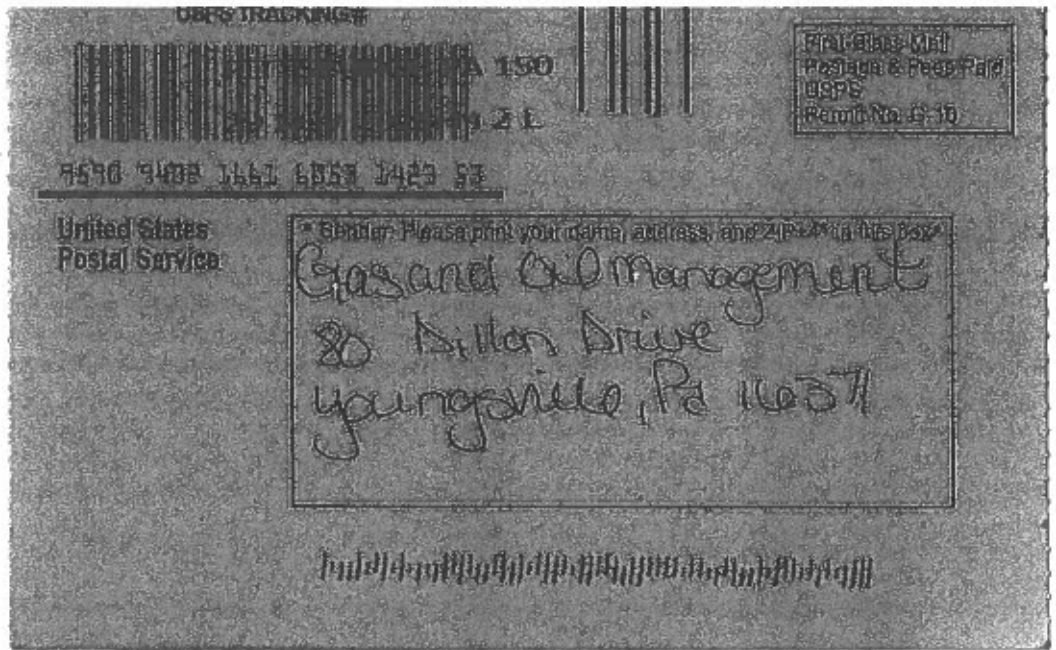 USPS TRACKING#
A 150
2 L
First-Class Mail
Postage & Fees Paid
USPS
Permit No. G-10
9590 9402 1661 6053 1423 53
United States
Postal Service
* Sender: Please print your name, address, and ZIP+4® in this box*
Gas and Oil Management
80 Dillon Drive
Youngsville, Pa 16371